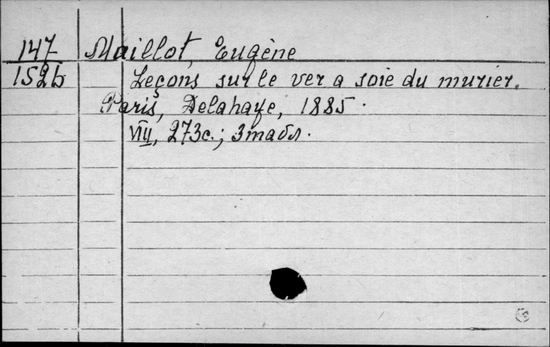 147 Maillot, Eugène
1526 Leçons sur le ver a soie du murier.
Paris, Delahaye, 1885.
VIII, 273c.; 3 табл.